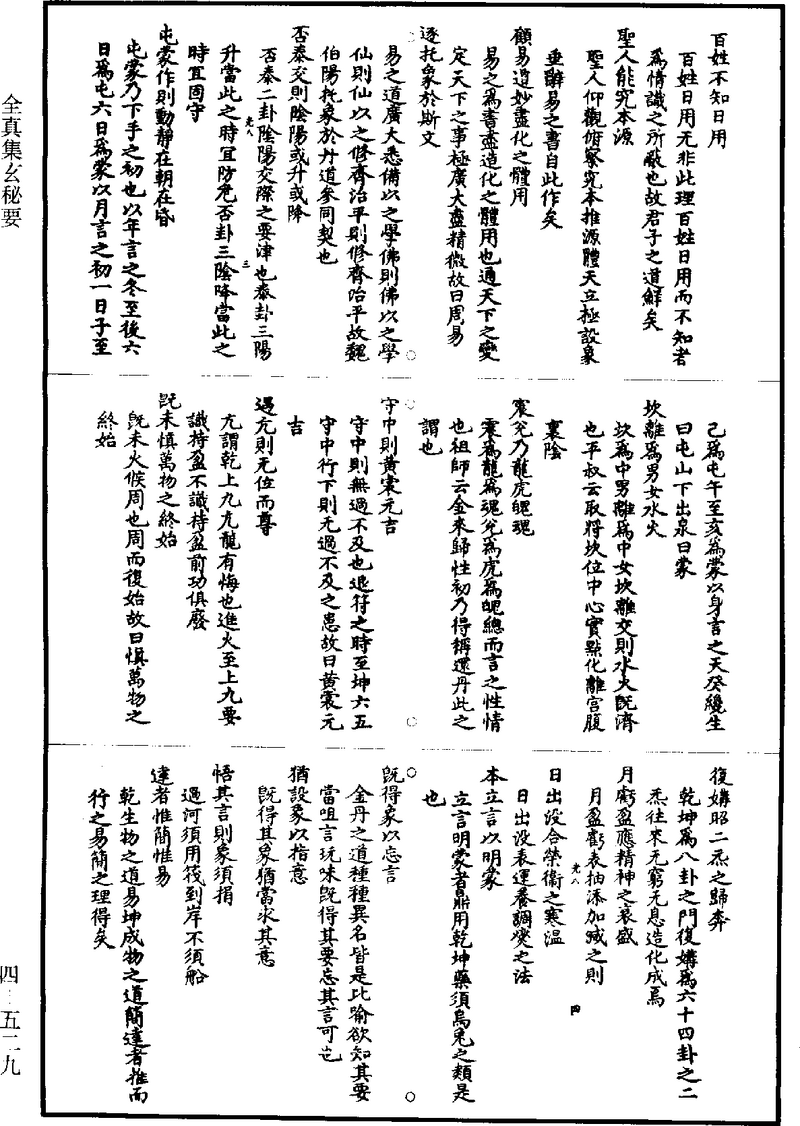 百姓不知日用
百姓日用无非此理百姓日用而不知者
為情識之所蔽也故君子之道鮮矣
聖人能究本源
聖人仰觀俯察究本推源體天立極設象
垂辭易之書自此作矣
顧易道妙盡化之體用
易之為書盡造化之體用也通天下之變
定天下之事極廣大盡精微故曰周易
遂托象於斯文
易之道廣大悉備以之學佛則佛以之學
仙則仙以之修齊治平則修齊治平故魏
伯陽托象於丹道參同契也
否泰交則陰陽或升或降
否泰二卦陰陽交際之要津也泰卦三陽
光八
三
升當此之時宜防危否卦三陰降當此之
時宜固守
屯蒙作則動靜在朝在昏
屯蒙乃下手之初也以年言之冬至後六
日為屯六日為蒙以月言之初一日子至
己為屯午至亥為蒙以身言之天癸纔生
曰屯山下出泉曰蒙
坎離為男女水火
坎為中男離為中女坎離交則水火既濟
也平叔云取將坎位中心實點化離宮腹
裏陰
震兌乃龍虎魄魂
震為龍為魂兌為虎為魄總而言之性情
也祖師云金來歸性初乃得稱還丹此之
謂也
守中則黃裳元吉
守中則無過不及也退符之時至坤六五
守中行下則无過不及之患故曰黃裳元
吉
遇亢則无位而尊
亢謂乾上九亢龍有悔也進火至上九要
識持盈不識持盈前功俱廢
既未慎萬物之終始
既未火候周也周而復始故曰慎萬物之
終始
復姤昭二炁之歸奔
乾坤為八卦之門復姤為六十四卦之二
炁往來无窮无息造化成焉
月虧盈應精神之衰盛
月盈虧表抽添加減之則
光八
四
日出沒合榮衛之寒溫
日出沒表運養調燮之法
本立言以明蒙
立言明蒙者鼎用乾坤藥須烏兔之類是
也
既得象以忘言
金丹之道種種異名皆是比喻欲知其要
當咀言玩味既得其要忘其言可也
猶設象以指意
既得其象猶當求其意
悟其言則象須捐
過河須用筏到岸不須船
達者惟簡惟易
乾生物之道易坤成物之道簡達者推而
行之易簡之理得矣
全真集玄秘要
四—五二九